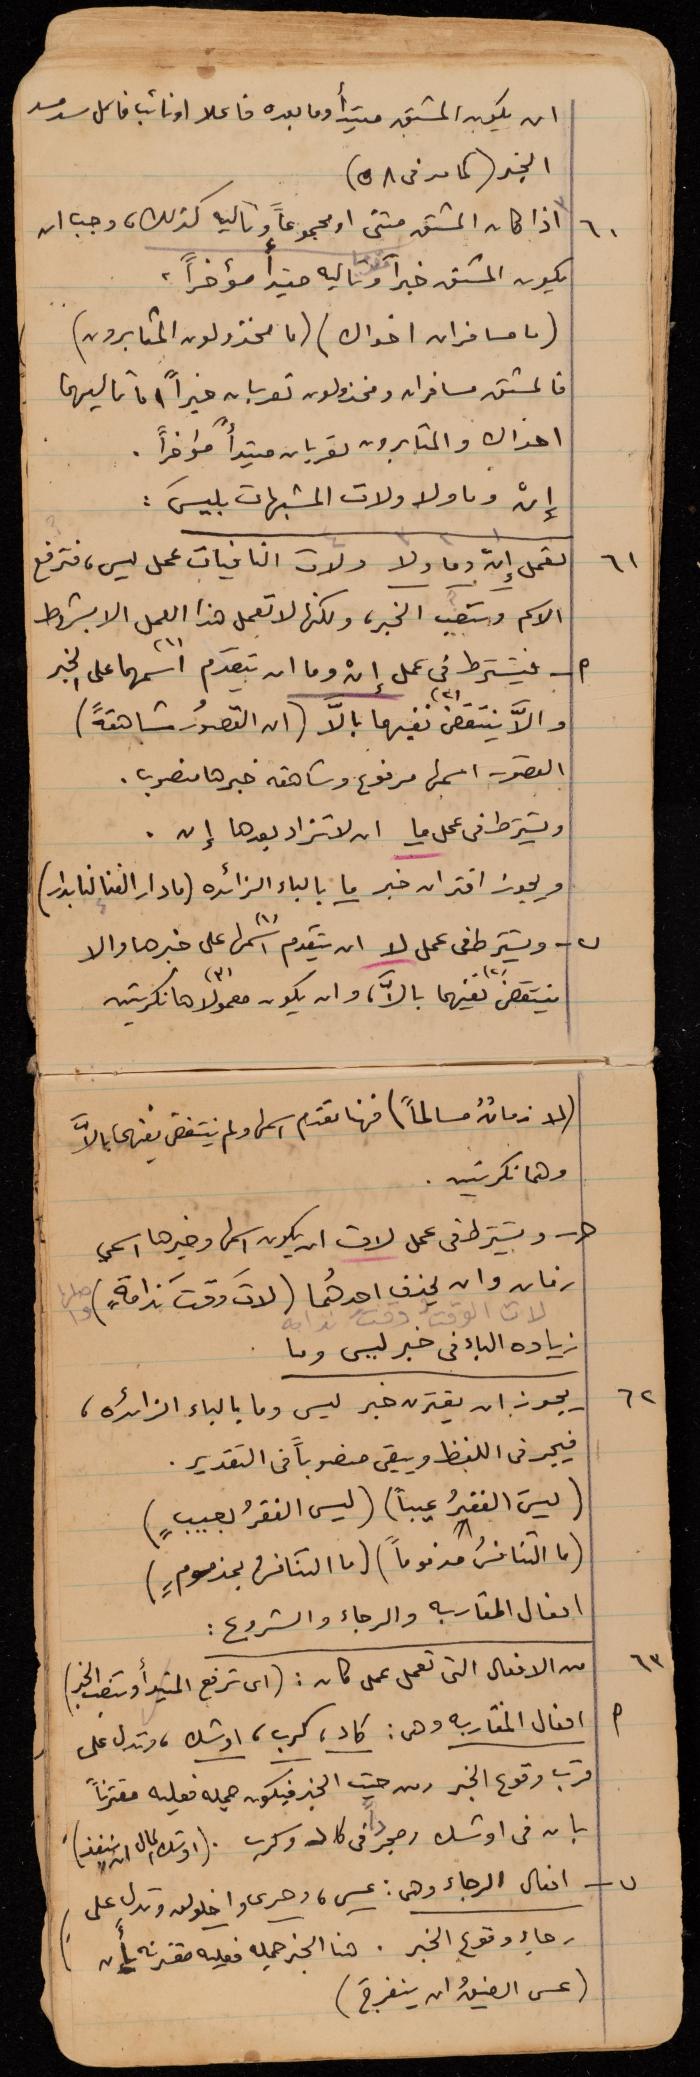 ان يكون المشتق مبتدأ وما بعده فاعلا او نائب فاعل سد مسد
الخبر (كما مر في ٥٨)
٦٠ اذا كان المشتق مثنى او مجموعاً وتاليه كذلك، وجب ان
يكون المشتق خبراً وتاليه مبتدأ مؤخراً،
(ما مسافران اخواك) (ما مخذولون المثابرون)
فالمشتق مسافران ومخذولون تعربان خبراً اما تاليهما
اخواك والمثابرون تعربان مبتدأً مؤخراً.
إنْ وما ولا ولات المشبهات بليسَ:
٦١ تعمل إنْ وما ولا ولات النافيات عمل ليس، فترفع
الاسم وتنصب الخبر، ولكنها لا تعمل هذا العمل الا بشروط
أ - فيشترط في عمل إنْ وما ان يتقدم (١) اسمهما على الخبر
والاَّ ينتقض (٢) نفيها بالاَّ (ان القصورُ شاهقةً)
القصور اسمها مرفوع وشاهقه خبرها منصوب.
ويشترط في عمل ما ان لا تزاد بعدها إن.
ويجوز اقتران خبر ما بالباء الزائده (ما دار الفنا لنا بدار)
ب - ويشترط في عمل لا ان يتقدم (١) اسمها على خبرها والا
ينتقض (٢) نفيهما بالاَّ، وان يكون (٣) معمولاها نكرتين
(لا زمانٌ مسالماً) فهنا تقدم اسمها ولم ينتقض نفيهما بالاَّ
وهما نكرتين.
ج - ويشترط في عمل لات ان يكون اسمها وخبرها اسمي
زمان وان يحذف احدهُما (لاتَ وقتَ ندامةٍ) اصلها
لات الوقتُ وقتَ ندامه
زياده الباء في خبر ليس وما
٦٢ يجوز ان يقترن خبر ليس وما بالباء الزائده،
فيجر في اللفظ ويبقى منصوباً في التقدير.
(ليسَ الفقيرُ عيباً) (ليس الفقرُ بعيبٍ)
(ما التنافسُ مذموماً) (ما التنافسُ بمذمومٍ)
افعال المقاربه والرجاء والشروع:
٦٣ من الافعال التي تعمل عمل كان: (اي ترفع المبتدأ وتنصب الخبر)
أ افعال المقاربه وهي: كاد، كرب، اوشك، وتدل على
قرب وقوع الخبر من حيث الخبر فيكون جمله فعليه مقترناً
بان في اوشك ومجرداً في كاد وكرب. (اوشك المال ان ينفذ)
ب - افعال الرجاء وهي: عسى، وحرى واخلولق وتدل على
رجاء وقوع الخبر. هنا الخبر جمله فعليه مقترنه بأن
(عسى الضيقُ ان ينفرجَ)